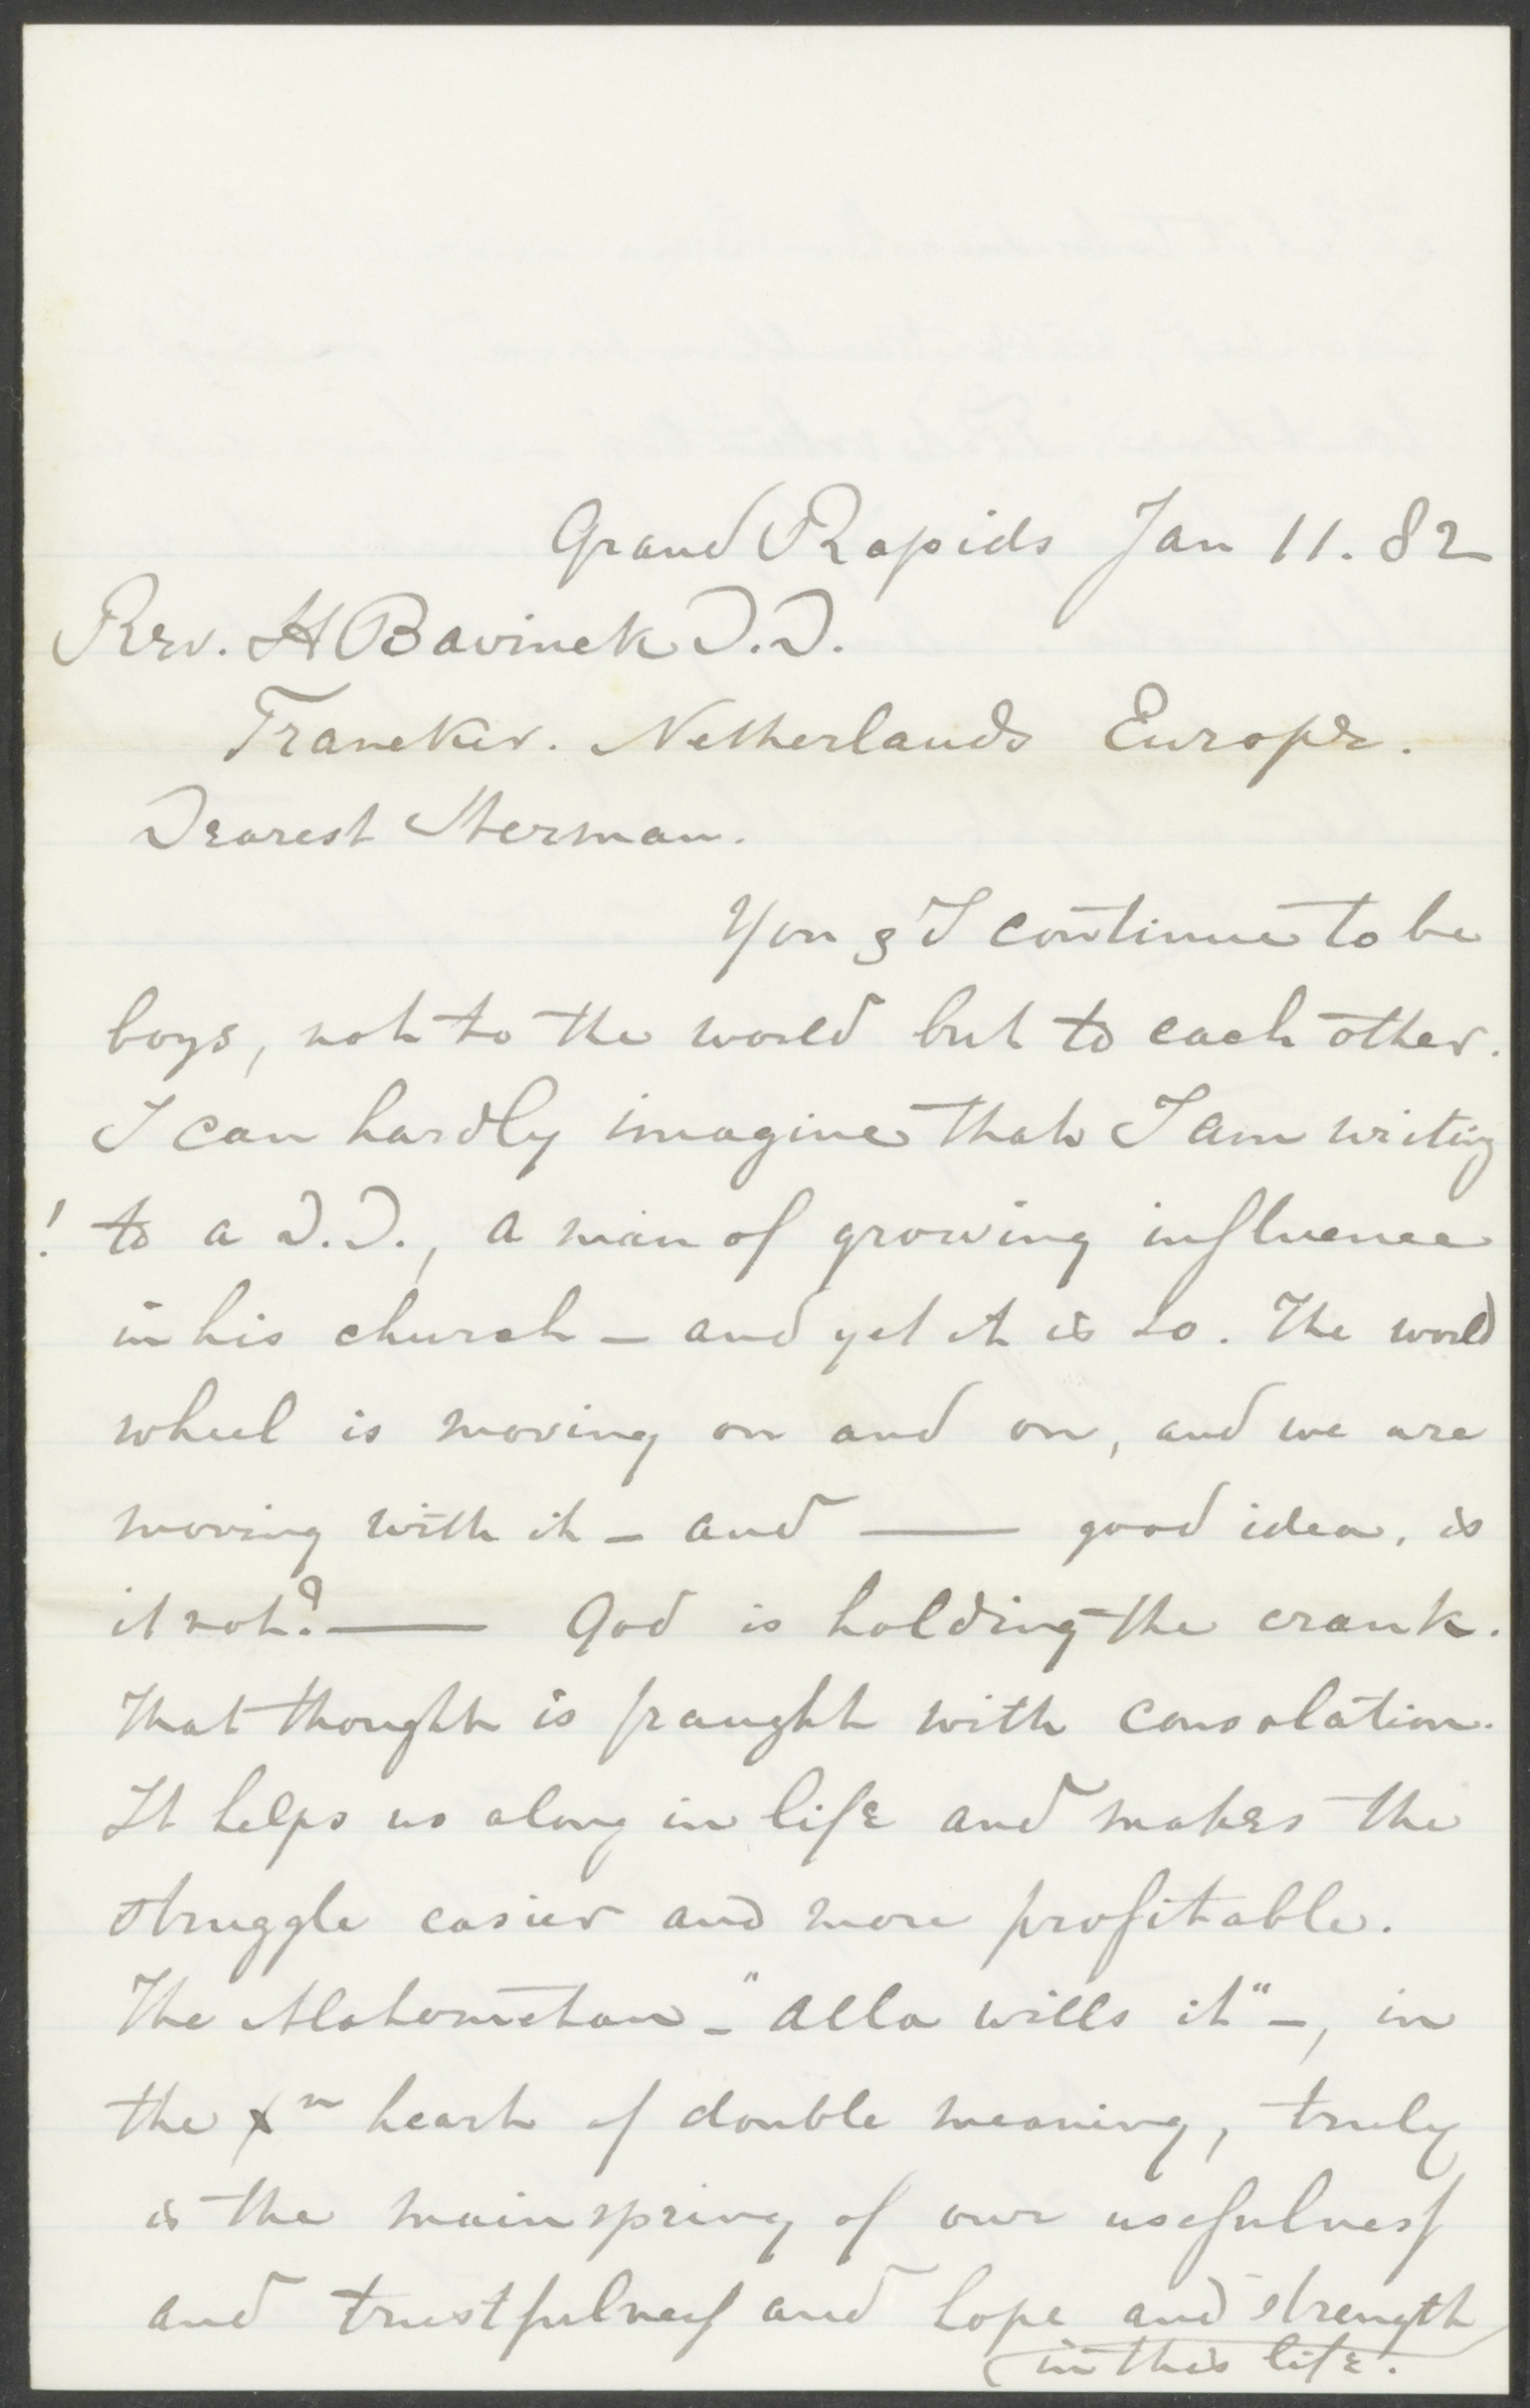 Grand Rapids Jan 11. 82
Rev. H Bavinck D.D.
Franeker. Netherlands Europe.
Dearest Herman.
You & I continue to be
boys, not to the world but to each other.
I can hardly imagine that I am writing
! to a D.D., a man of growing influence
in his church – and yet it is so. The world
wheel is moving on and on, and we are
moving with it – and —— good idea, is
it not? —— God is holding the crank.
That thought is fraught with consolation.
It helps us along in life and makes the
struggle easier and more profitable.
The Mahometan – "Alla wills it" –, in
the Xn heart of double meaning, truly
is the mainspring of our usefulness
and trustfulness and hope and strength
in this life.